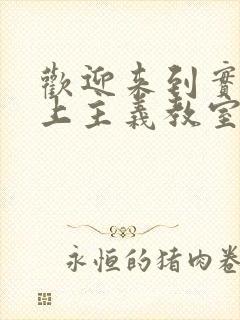 歡迎来到實
上主義教室
永恒的猪肉卷